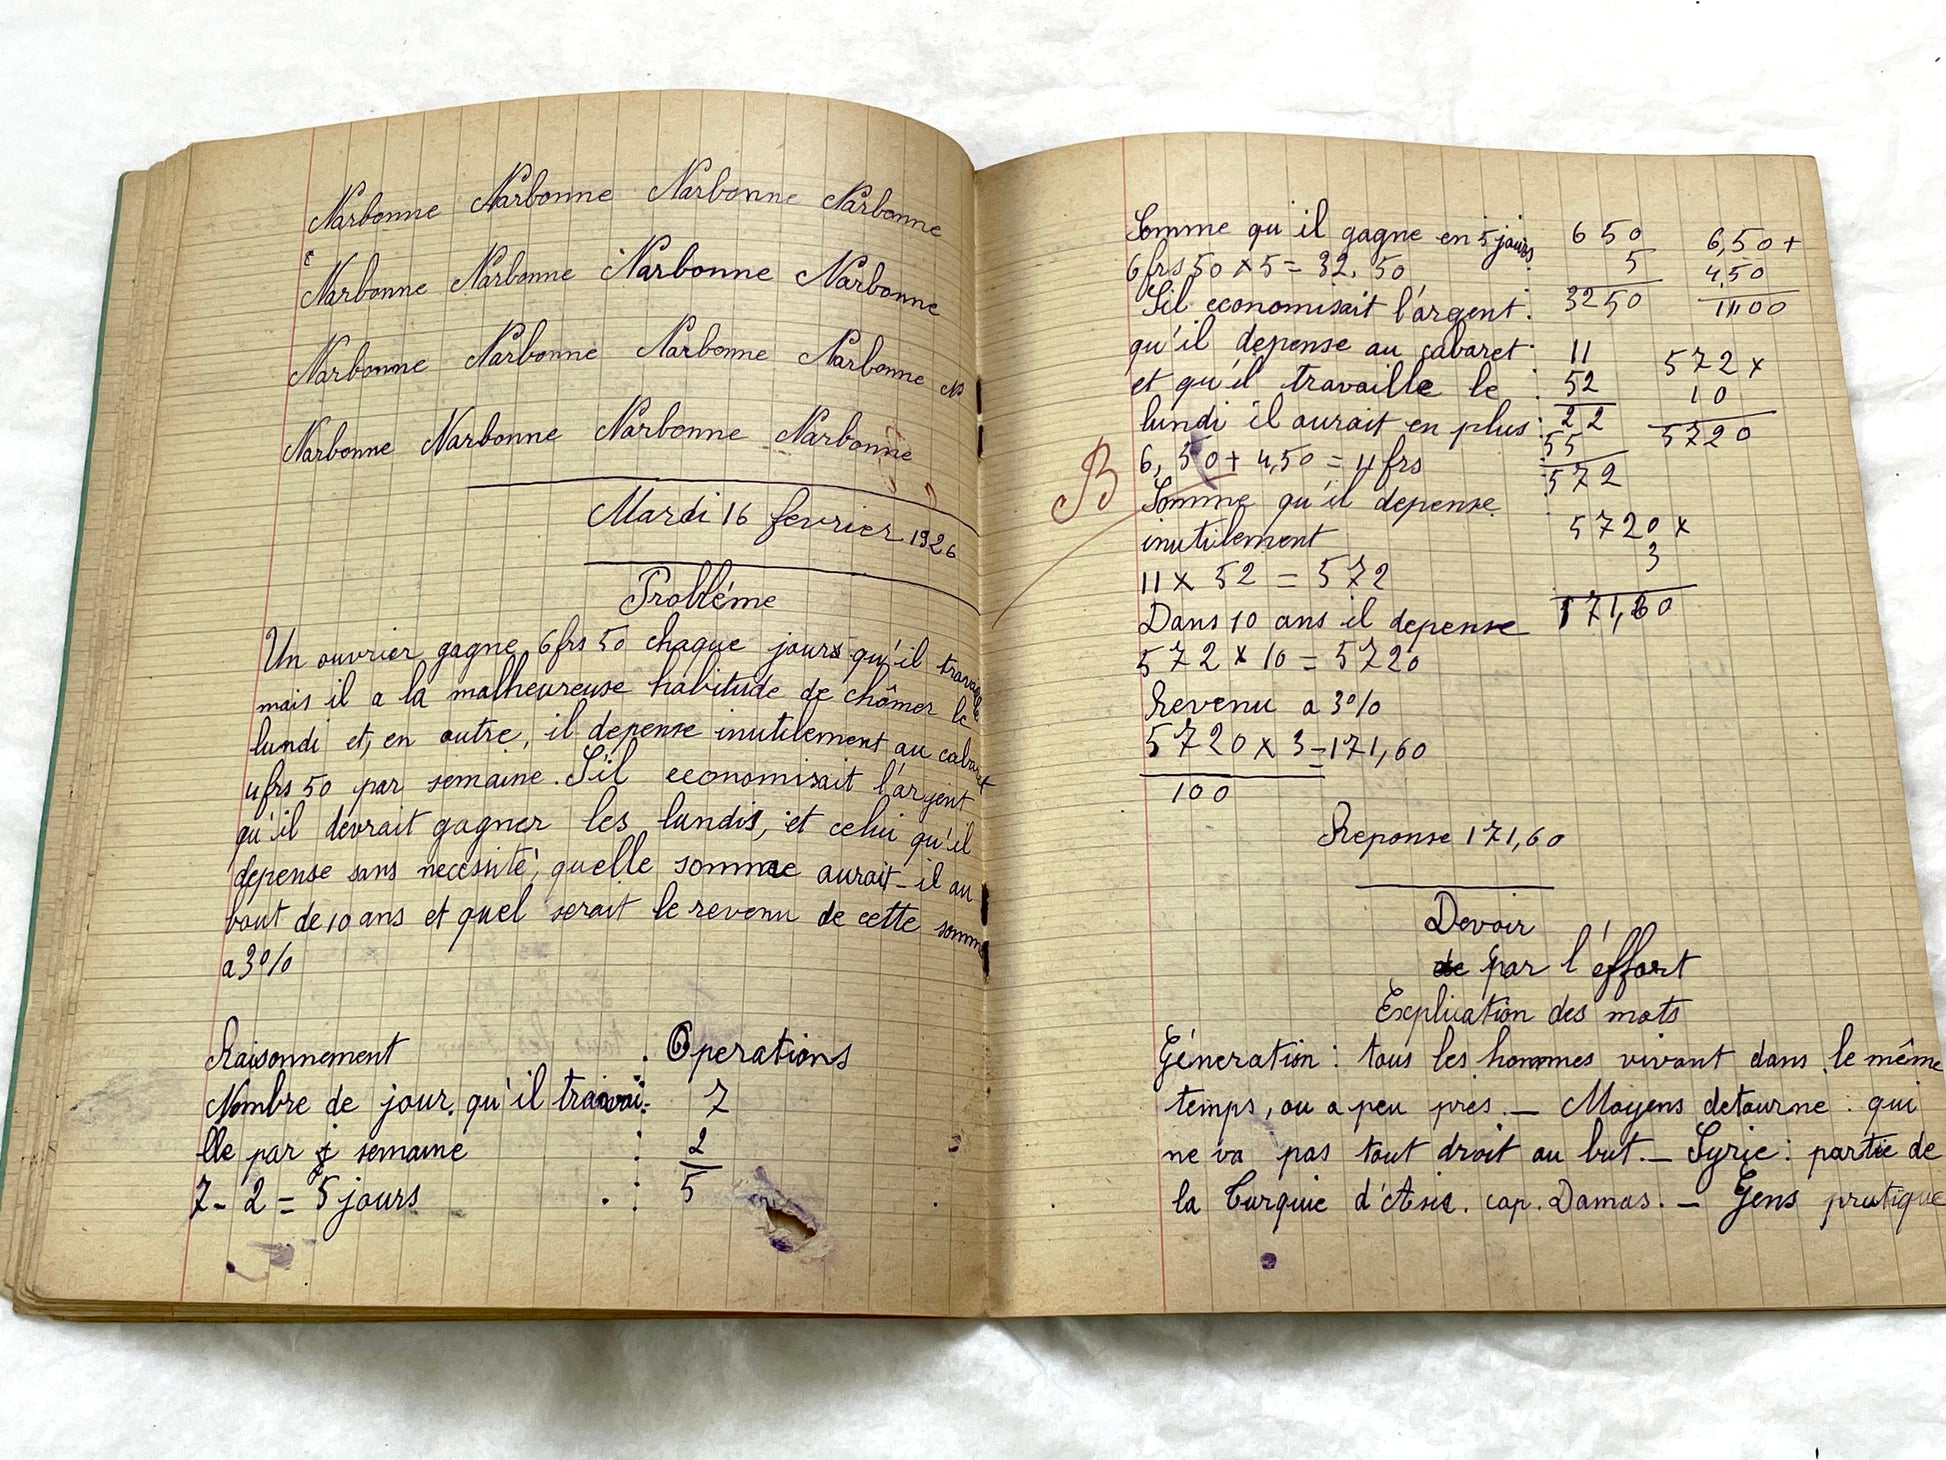 Narbonne Narbonne Narbonne Narbonne
Narbonne Narbonne Narbonne Narbonne
Narbonne Narbonne Narbonne Narbonne N
Narbonne Narbonne Narbonne Narbonne
Mardi 16 fevrier 1926
Probléme
Un ouvrier gagne 6frs 50 chaque jours qu'il travaille
mais il a la malheureuse habitude de chômer le
lundi et, en outre, il depense inutilement au cabaret
4frs 50 par semaine. S'il economisait l'argent
qu'il devrait gagner les lundis, et celui qu'il
depense sans necessité, quelle somme aurait-il au
bout de 10 ans et quel serait le revenu de cette somme
a 3%
Raisonnement : Operations
Nombre de jour qu'il travai: 7
lle par semaine : 2
7 - 2 = 5 jours : 5
Somme qu'il gagne en 5 jours 650 6,50 +
6frs 50 x 5 = 32,50 5 4,50
S'il economisait l'argent : 3250 11,00
qu'il depense au cabaret : 11 572 x
et qu'il travaille le : 52 10
lundi il aurait en plus : 22 5720
6,50 + 4,50 = 11 frs 55
B
Somme qu'il depense 572
inutilement 5720 x
11 x 52 = 572 3
Dans 10 ans il depense 171,60
572 x 10 = 5720
Revenu a 3%
5720 x 3 = 171,60
100
Reponse 171,60
Devoir
par l'éffort
Explication des mots
Géneration : tous les hommes vivant dans le même
temps, ou a peu près. — Moyens detourne : qui
ne va pas tout droit au but. — Syrie : partie de
la Turquie d'Asie. cap. Damas. — Gens pratique